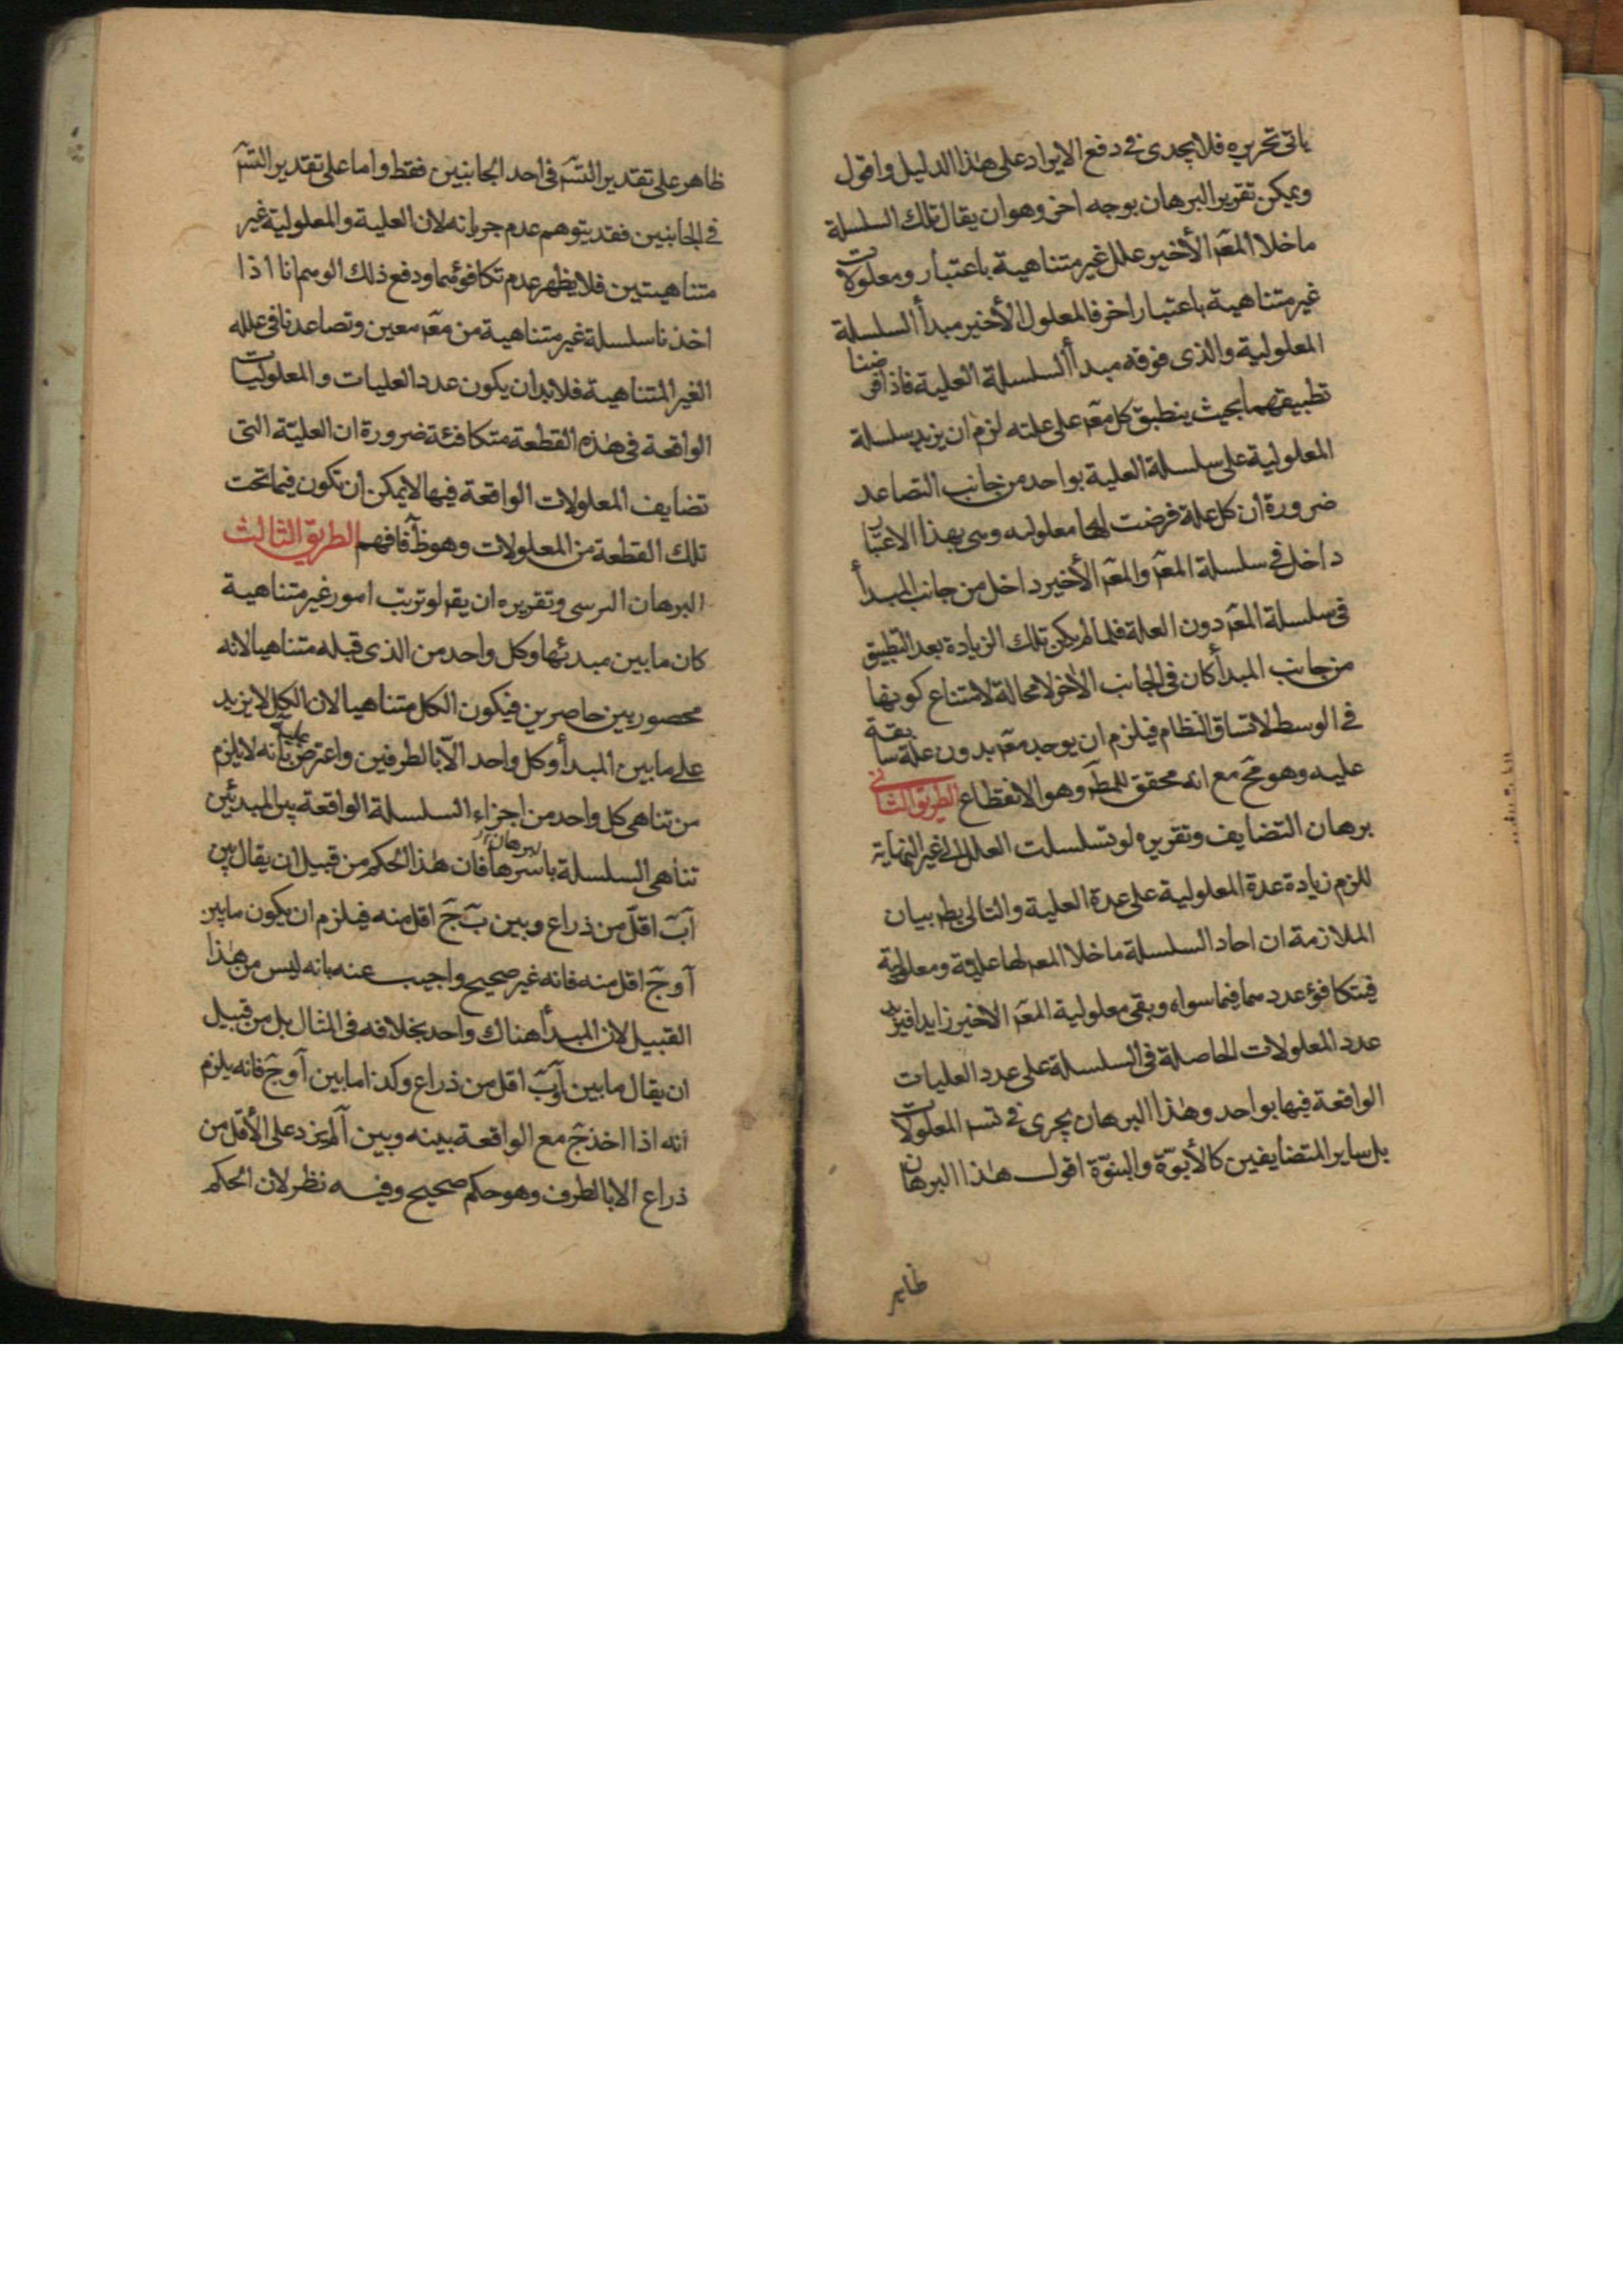 ياتى تحريره فلا يجدى فى دفع الايراد على هذا الدليل واقول
ويمكن تقرير البرهان بوجه اخر وهو ان يقال تلك السلسلة
ما خلا المعه الأخير علل غير متناهية باعتبار ومعلولات
غير متناهية باعتبار اخر فالمعلول الأخير مبدأ السلسلة
المعلولية والذى فوقه مبدأ السلسلة العلية فاذا فرضنا
تطبيقهما بحيث ينطبق كل معه على علته لزم ان يزيد سلسلة
المعلولية على سلسلة العلية بواحد من جانب التصاعد
ضرورة ان كل علة فرضت لها معلولية وهى بهذا الاعتبار
داخل فى سلسلة المعه والمعه الأخير داخل من جانب المبدأ
فى سلسلة المعه دون العلة فلما لم يكن تلك الزيادة بعد التطبيق
من جانب المبدأ كان فى الجانب الاخر لا محالة لامتناع كونها
فى الوسط لاتساق النظام فيلزم ان يوجد معه بدون علة سابقة
عليه وهو مح مع انه محقق للمط وهو الانقطاع الطريق الثانى
برهان التضايف وتقريره لو تسلسلت العلل الى غير النهاية
للزم زيادة عدة المعلولية على عدة العلية والتالى بط بيان
الملازمة ان احاد السلسلة ما خلا المعه لها علية ومعلولية
فيتكافؤ عددهما فيما سواه وبقى معلولية المعه الاخير زايدا فيزيد
عدد المعلولات الحاصلة فى السلسلة على عدد العليات
الواقعة فيها بواحد وهذا البرهان يجرى فى تسه المعلولات
بل ساير المتضايفين كالأبوّة والبنوّة اقول هذا البرهان
ظاهر
ظاهر على تقدير التسه فى احد الجانبين فقط واما على تقدير التسه
فى الجانبين فقد يتوهم عدم جريانه لان العلية والمعلولية غير
متناهيتين فلا يظهر عدم تكافؤهما ودفع ذلك الوهم انا اذا
اخذنا سلسلة غير متناهية من معه معين وتصاعدنا فى علله
الغير المتناهية فلا بد ان يكون عدد العليات والمعلوليات
الواقعة فى هذه القطعة متكافئة ضرورة ان العليّة التى
تضايف المعلولات الواقعة فيها لا يمكن ان تكون فيما تحت
تلك القطعة من المعلولات وهو ظ فافهم الطريق الثالث
البرهان العرشى وتقريره ان يقه لو ترتب امور غير متناهية
كان ما بين مبدئها وكل واحد من الذى قبله متناهيا لانه
محصور بين حاصرين فيكون الكل متناهيا لان الكل لا يزيد
على ما بين المبدأ وكل واحد الّا بالطرفين واعترض عليه بأنه لا يلزم
من تناهى كل واحد من اجزاء السلسلة الواقعة بين المبدئين
تناهى السلسلة باسرها فان هذا الحكم من قبيل ان يقال بين
آبٓ اقلّ من ذراع وبين بٓ جٓ اقل منه فيلزم ان يكون ما بين
آ وجٓ اقل منه فانه غير صحيح واجيب عنه بانه ليس من هذا
القبيل لان المبدأ هناك واحد بخلافه فى المثال بل من قبيل
ان يقال ما بين آ وبٓ اقل من ذراع وكذا ما بين آ وجٓ فانه يلزم
انه اذا اخذ جٓ مع الواقعة بينه وبين آ لم يزد على الأقل من
ذراع الا بالطرف وهو حكم صحيح وفيه نظر لان الحكم